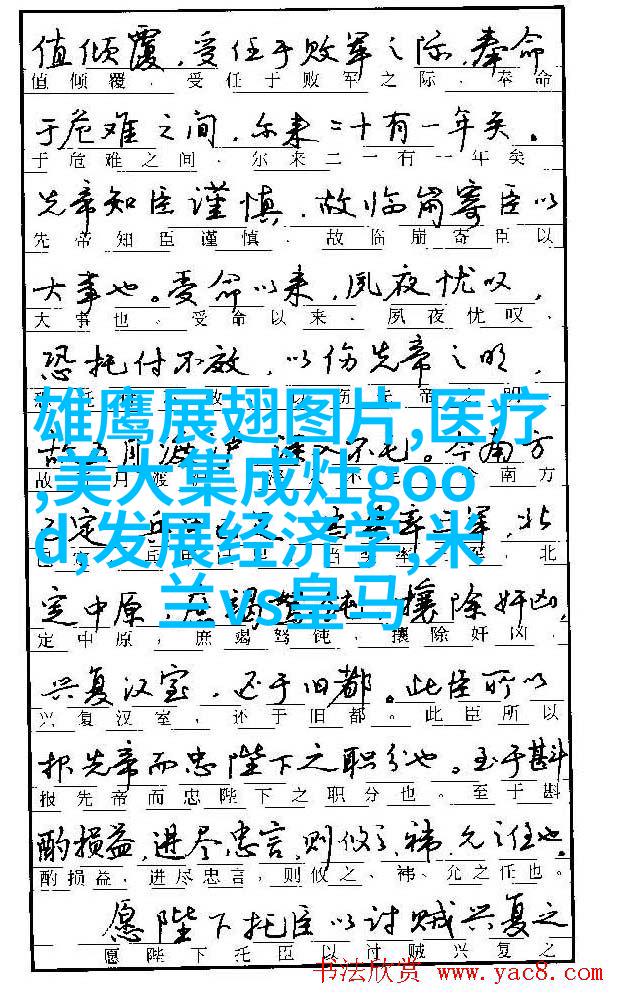 值倾覆，受任于败军之际，奉命
值倾覆，受任于败军之际，奉命
于危难之间，尔来二十有一年矣。
于危难之间，尔来二一有一年矣
先帝知臣谨慎，故临崩寄臣以
先帝知臣谨慎，故临崩寄臣以
大事也。受命以来，夙夜忧叹，
大事也。受命以来，夙夜忧叹，
恐托付不效，以伤先帝之明，
雄鹰展翅图片,医疗
,美大集成灶goo
d,发展经济学,米
兰vs皇马
故五月渡 深入不毛。今南方
故 月渡 不 今南方
定 北
北
定中原，庶竭驽钝，攘除奸凶，
定中原，庶竭驽钝，攘除奸凶，
兴复汉室，还于旧都。此臣所以
兴复汉室，还于旧都。此臣所以
报先帝而忠陛下之职分也。至于斟
报先帝而忠陛下之职分也。至于斟
酌损益，进尽忠言，则攸之、祎、允之任也。
酌损益，进尽忠言，则攸之、祎、允之任也。
愿陛下托臣以讨贼兴复之
愿陛下托臣以讨贼兴复之
书法欣赏 www.yac8.com